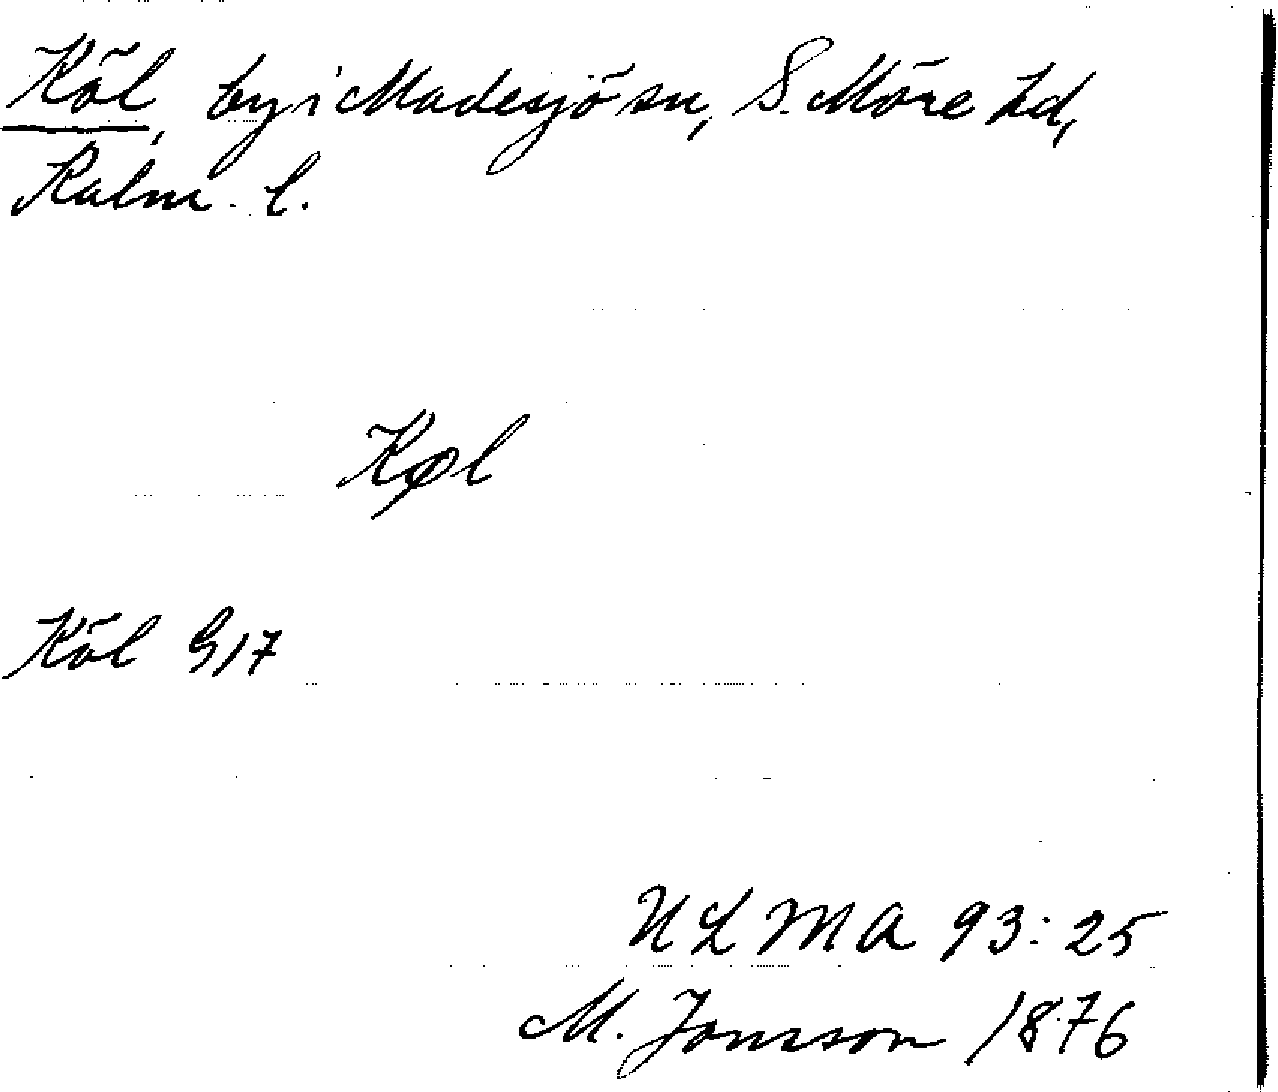 Köl, by i Madesjö sn, S. Möre hd,
Kalm. l.
Køl
Köl G17
ULMA 93:25
M. Jonsson 1876